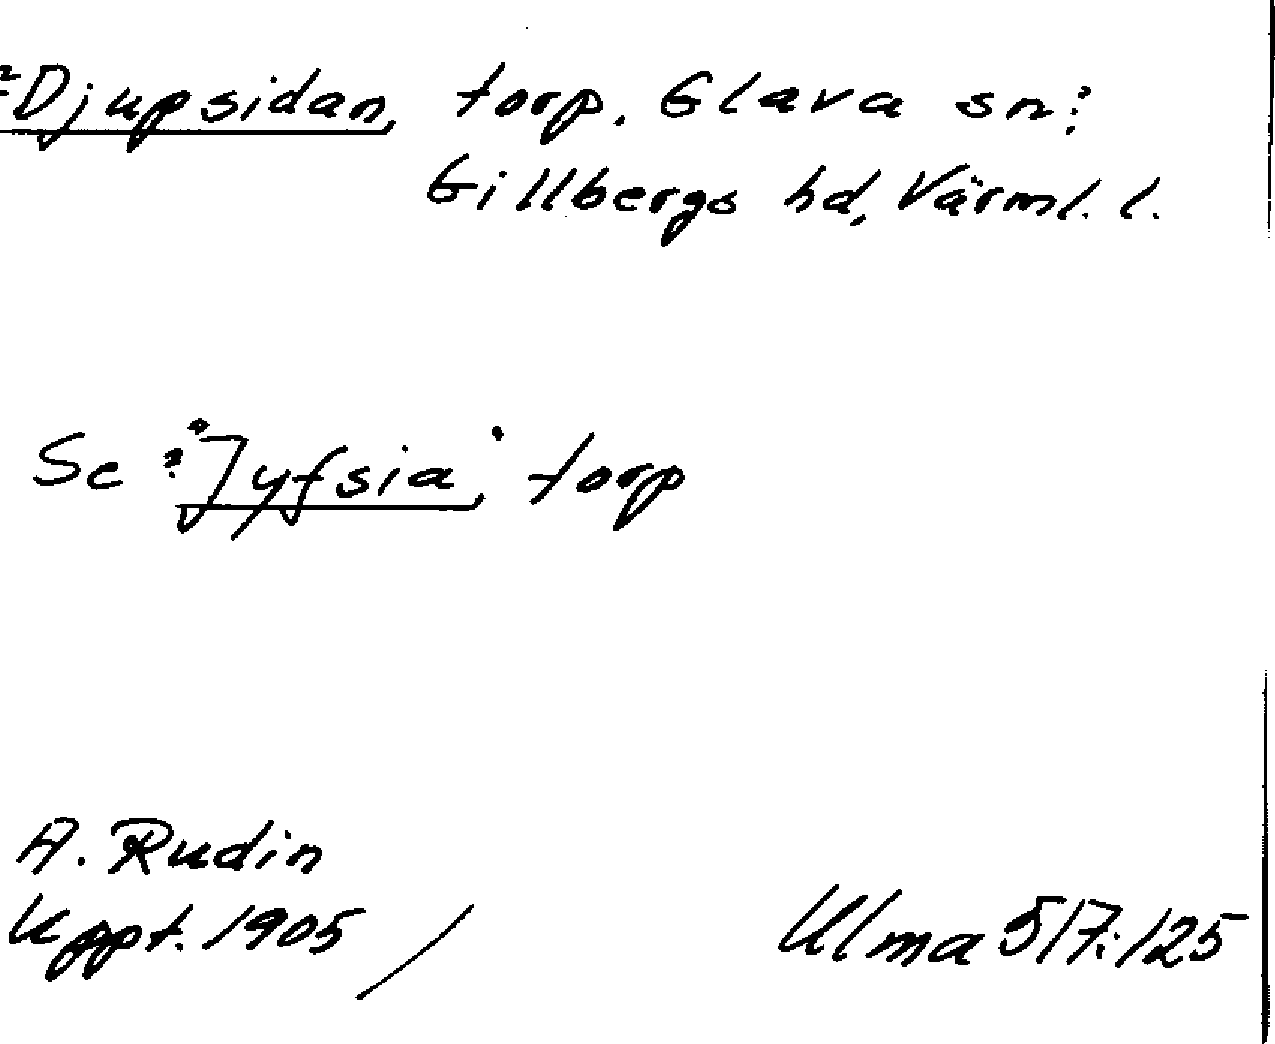 ?Djupsidan, torp. Glava sn:
Gillbergs hd, Värml. l.
Se ?"Jyfsia", torp
A. Rudin
Uppt. 1905 /
Ulma 517:125